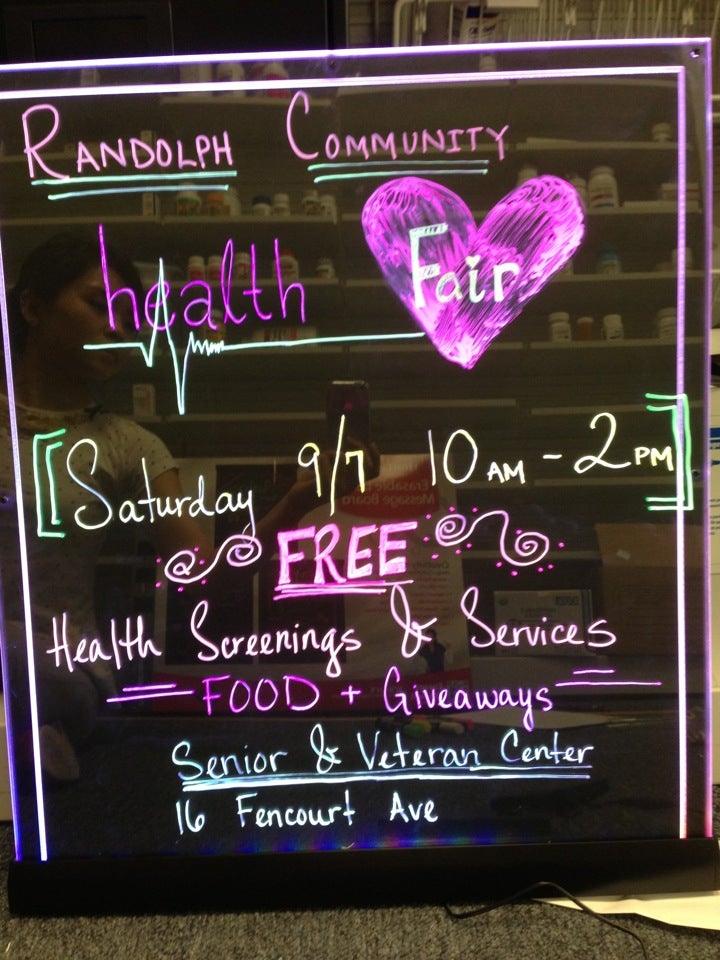 RANDOLPH COMMUNITY
health Fair
Saturday 9/7 10 AM - 2 PM
FREE
Health Screenings & Services
FOOD + Giveaways
Senior & Veteran Center
16 Fencourt Ave
Erasable
Message Board